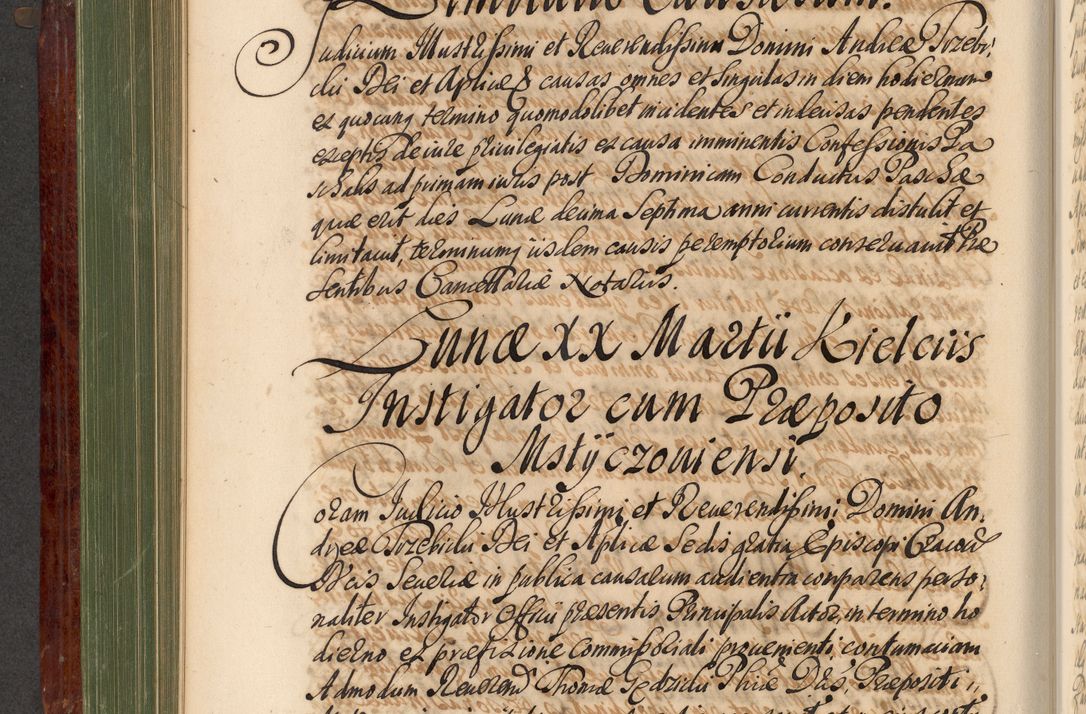 Limitatio Causarum.
Judicium Illustrissimi et Reverendissimi Domini Andreæ Trzebi„
cki Dei et Aplicæ & causas omnes et singulas in diem hodiernam
ex quocunq termino quomodolibet incidentes et indecisas pendentes
exceptis de iure privilegiatis ex causa imminentis Confessionis Pa
schalis ad primam iuris post Dominicam Conductus Paschæ
quæ erit dies Lunæ decima Septima anni currentis distulit et
limitavit, terminumq iisdem causis peremptorium conservavit Præ
sentibus Cancellariæ Notariis.
Lunæ XX Martii Kielciis
Instigator cum Præposito
Mstÿczoviensi.
Coram Iudicio Illustrissimi et Reverendissimi Domini An„
dreæ Trzebicki Dei et Aplicæ Sedis gratia Episcopi Cracov
Ducis Severiæ in publica causarum audientia comparens perso„
naliter Instigator Officii præsentis Principalis Actor, in termino ho
dierno ex præfixione Commissoriali provenienti, contumaciam
Admodum Reverend Thomæ Gedzicki Phiæ Dris, Præpositi